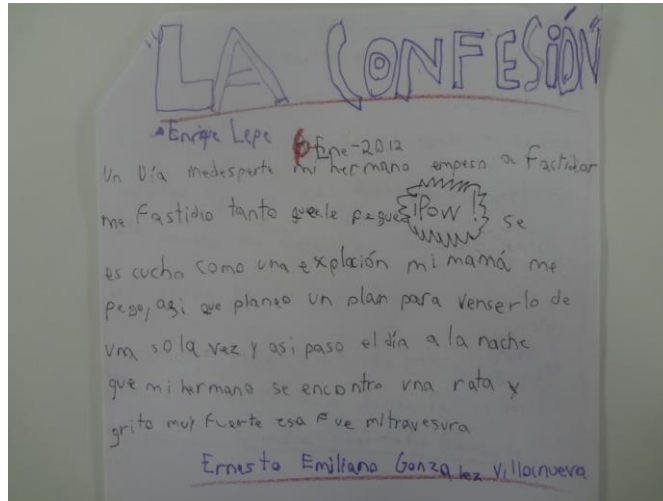 LA CONFESIÓN
*Enrique Lepe 6-Ene-2012
Un Día medesperte mi hermano empeso a Factidar
me Fastidio tanto quele pegue ¡Pow! se
es cucho como una explocion mi mamá me
pego, asi que planeo un plan para venserlo de
una sola vez y asi paso el día a la nache
que mi hermano se encontro una rata y
grito muy fuerte esa Fue mi travesura
Ernesto Emiliano Gonzalez Villanueva